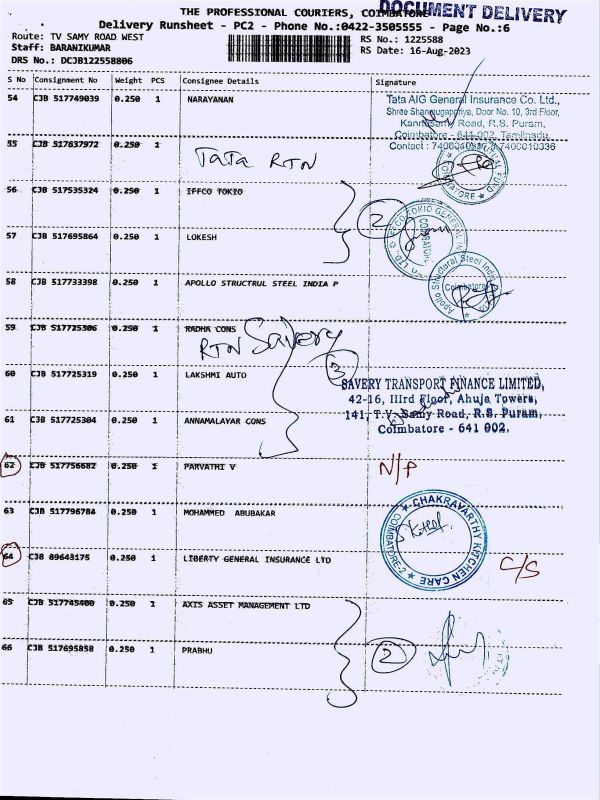 THE PROFESSIONAL COURIERS, COIMBATORE
DOCUMENT DELIVERY
Delivery Runsheet - PC2 - Phone No.:0422-3505555 - Page No.:6
Route: TV SAMY ROAD WEST
RS No.: 1225588
Staff: BARANIKUMAR
RS Date: 16-Aug-2023
DRS No.: DCJB122558806
S No Consignment No Weight PCS Consignee Details Signature
54 CJB 517749039 0.250 1 NARAYANAN
Tata AIG General Insurance Co. Ltd.,
Shree Shanmugapriya, Door No. 10, 3rd Floor,
Kannusamy Road, R.S. Puram,
Coimbatore - 641 002, Tamilnadu
Contact : 7400010336
55 CJB 517637972 0.250 1
Tata RTN
COIMBATORE
56 CJB 517535324 0.250 1 IFFCO TOKIO
2
IFFCO TOKIO GENERAL
COIMBATORE
57 CJB 517695864 0.250 1 LOKESH
58 CJB 517733398 0.250 1 APOLLO STRUCTRUL STEEL INDIA P
Apollo Structural Steel India
Coimbatore
59 CJB 517725306 0.250 1 RADHA CONS
RTN Savery
3
60 CJB 517725319 0.250 1 LAKSHMI AUTO
SAVERY TRANSPORT FINANCE LIMITED,
42-16, IIIrd Floor, Ahuja Towers,
141, T.V. Samy Road, R.S. Puram,
Coimbatore - 641 002.
61 CJB 517725304 0.250 1 ANNAMALAYAR CONS
62 CJB 517756682 0.250 1 PARVATHI V
N/P
63 CJB 517796784 0.250 1 MOHAMMED ABUBAKAR
CHAKRAVARTHY KITCHEN CARE
COIMBATORE-2
64 CJB 89643175 0.250 1 LIBERTY GENERAL INSURANCE LTD
C/S
65 CJB 517745400 0.250 1 AXIS ASSET MANAGEMENT LTD
66 CJB 517695858 0.250 1 PRABHU
2